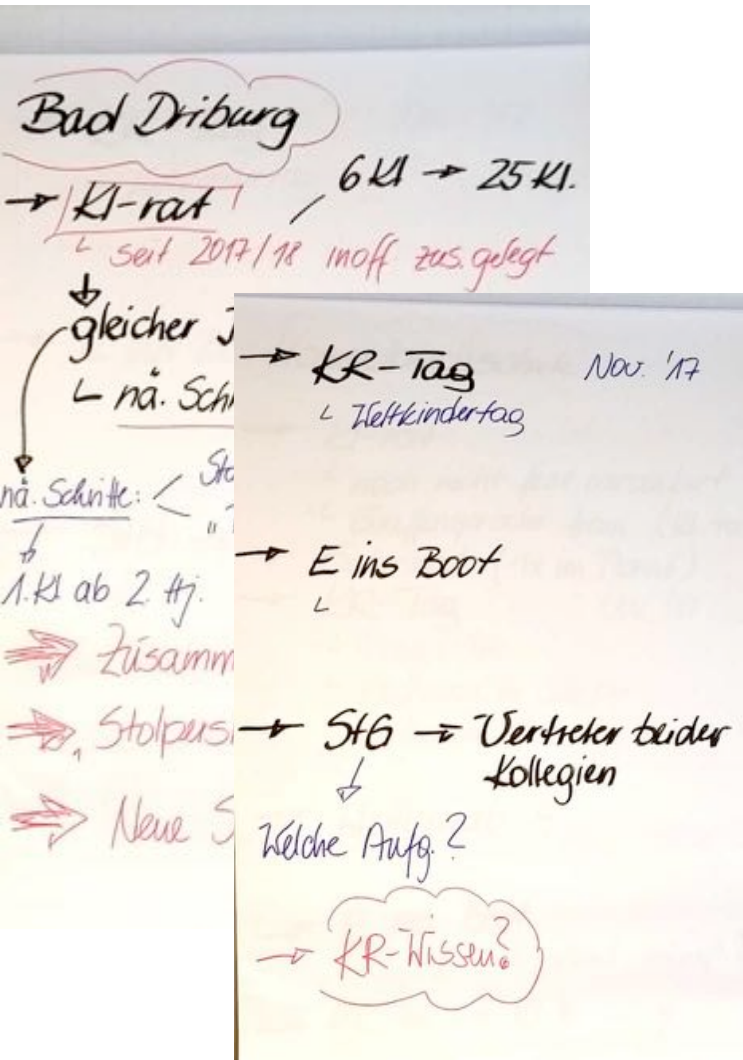 Bad Driburg
→ Kl-rat / 6 Kl → 25 Kl.
└ seit 2017/18 inoff zus.gelegt
↓
gleicher
└ nä. Sch
nä. Schritte: <
↓
1. Kl ab 2. Hj.
⇒ Zusamm
⇒ Stolpers
⇒ Neue S
→ KR-Tag Nov. '17
└ Weltkindertag
→ E ins Boot
└
→ StG → Vertreter beider
Kollegien
↓
Welche Aufg.?
→ KR-Wissen?